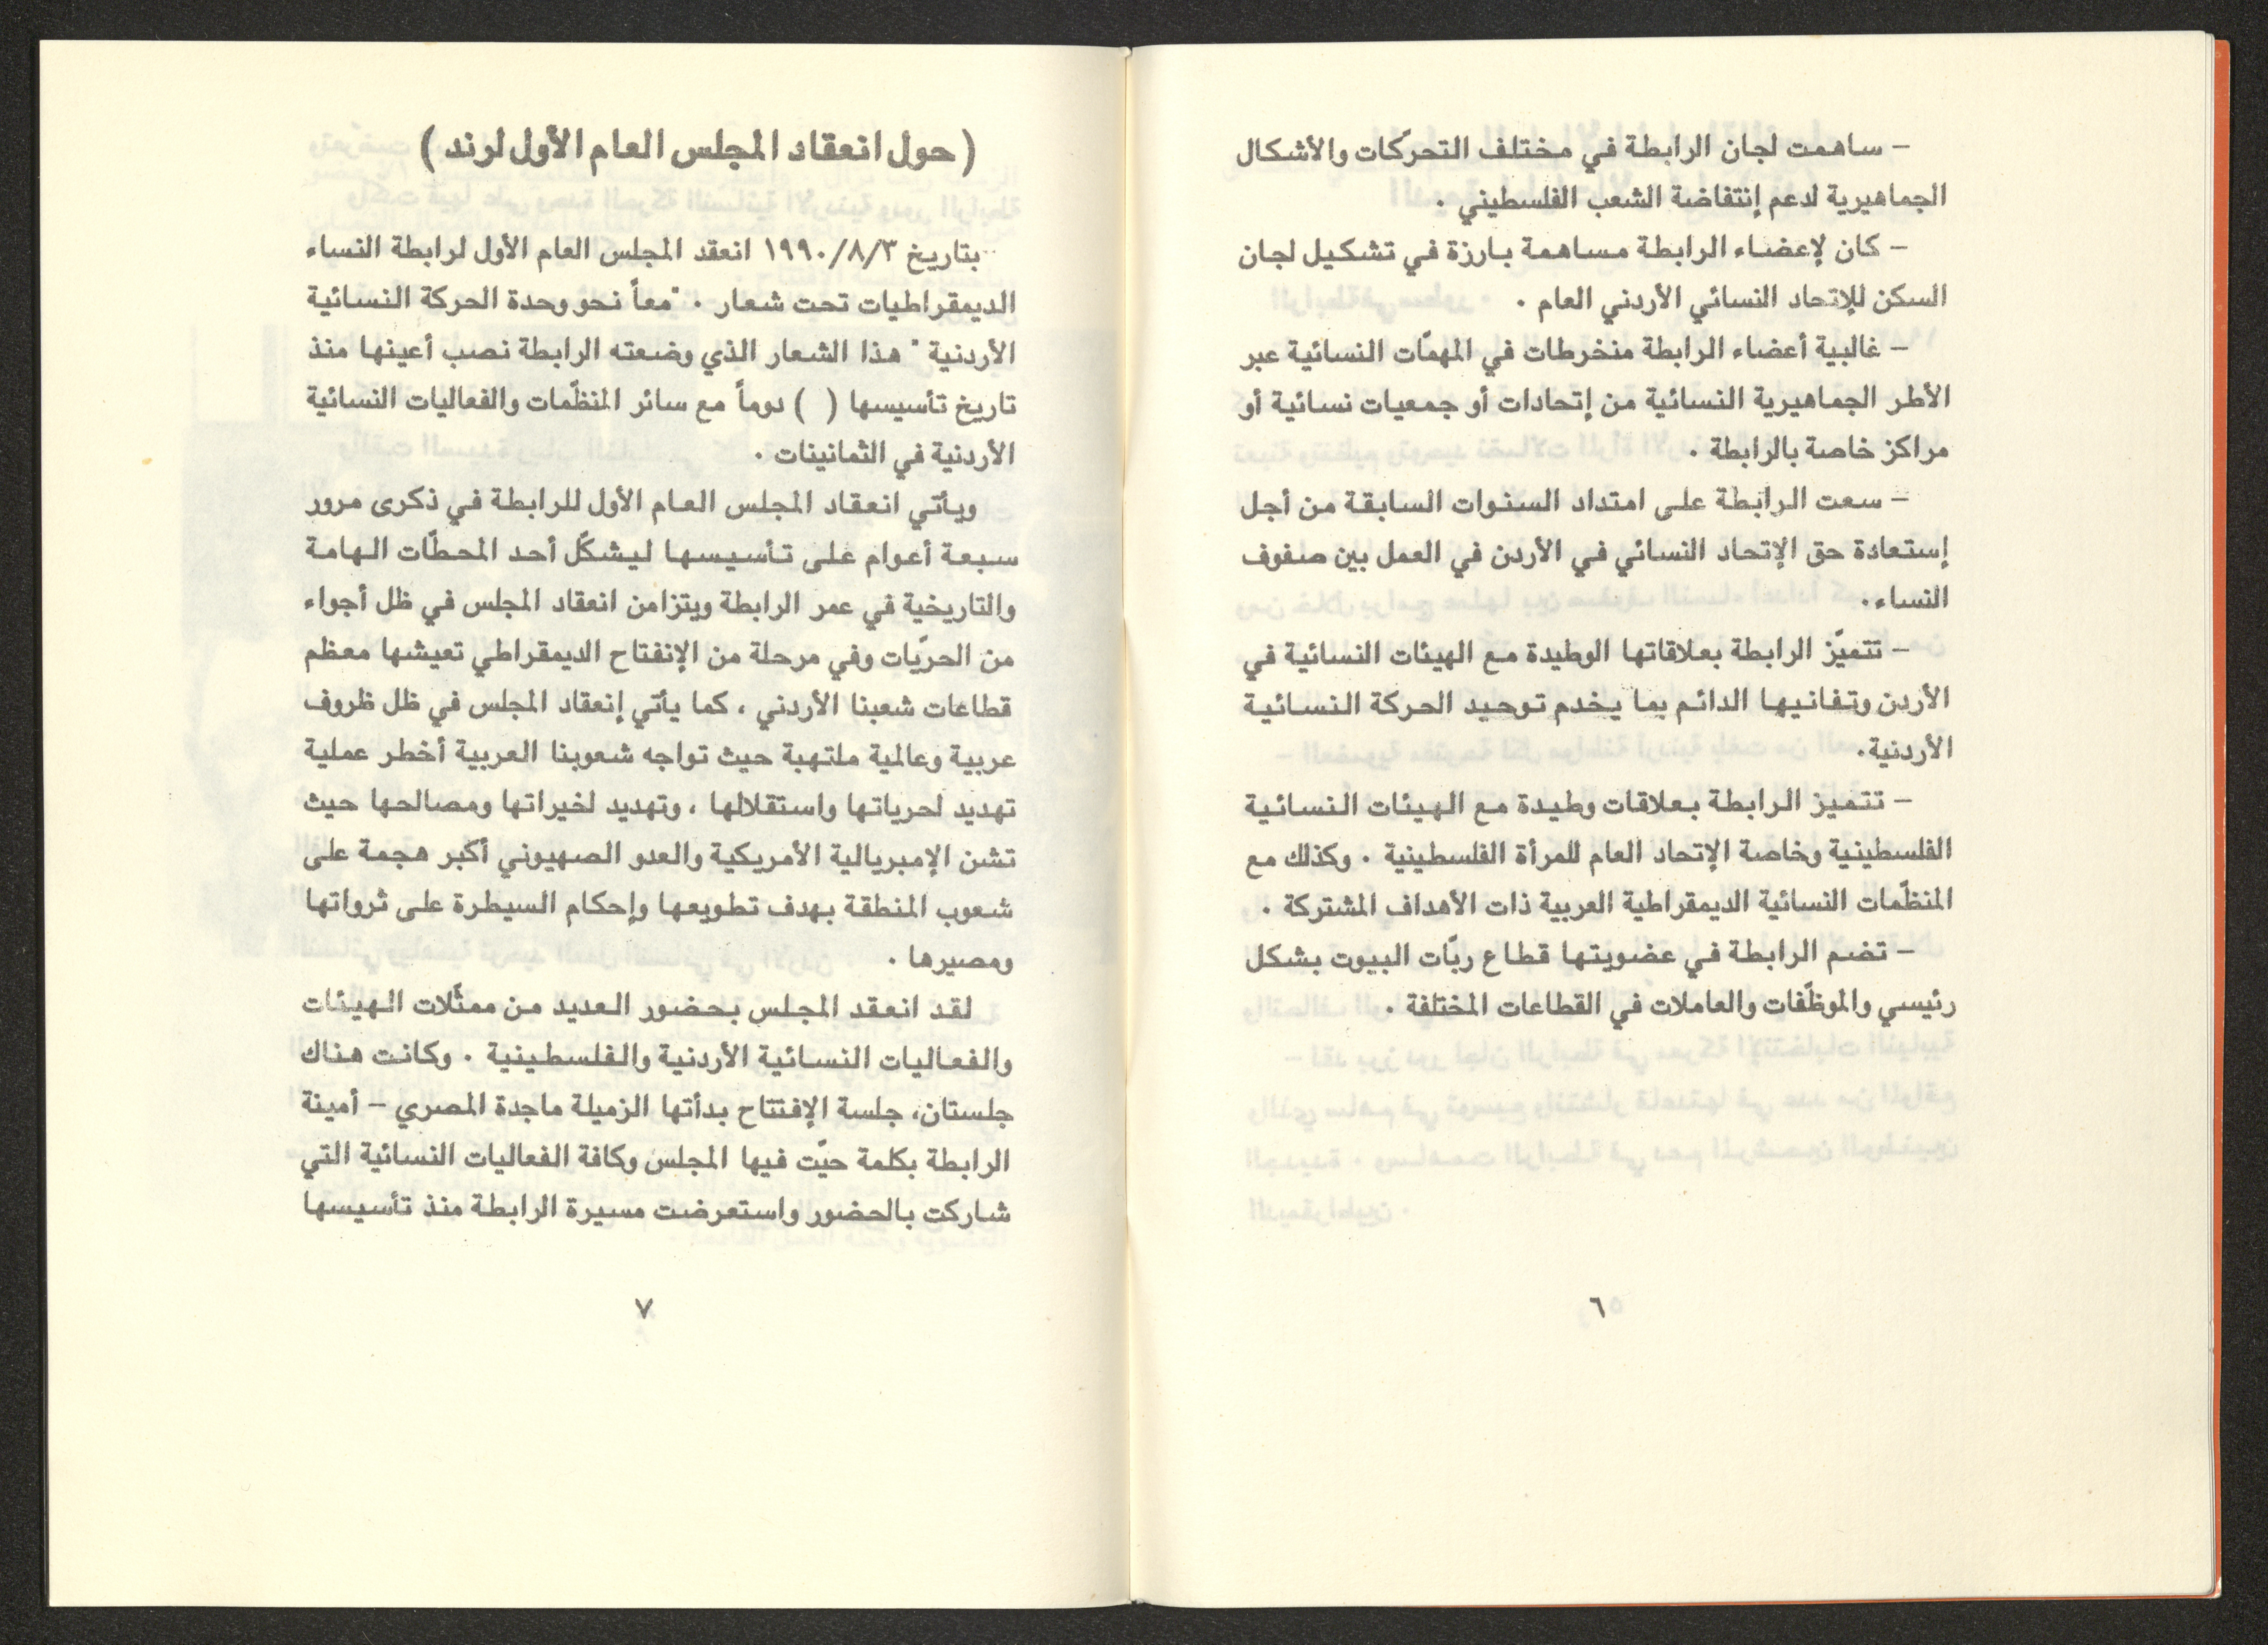 – ساهمت لجان الرابطة في مختلف التحركات والأشكال
الجماهيرية لدعم إنتفاضة الشعب الفلسطيني .
– كان لإعضاء الرابطة مساهمة بارزة في تشكيل لجان
السكن للإتحاد النسائي الأردني العام .
– غالبية أعضاء الرابطة منخرطات في المهمّات النسائية عبر
الأطر الجماهيرية النسائية من إتحادات أو جمعيات نسائية أو
مراكز خاصة بالرابطة .
– سعت الرابطة على امتداد السنوات السابقة من أجل
إستعادة حق الإتحاد النسائي في الأردن في العمل بين صفوف
النساء.
– تتميّز الرابطة بعلاقاتها الوطيدة مع الهيئات النسائية في
الأردن وتفانيها الدائم بما يخدم توحيد الحركة النسائية
الأردنية.
– تتميز الرابطة بعلاقات وطيدة مع الهيئات النسائية
الفلسطينية وخاصة الإتحاد العام للمرأة الفلسطينية . وكذلك مع
المنظّمات النسائية الديمقراطية العربية ذات الأهداف المشتركة .
– تضم الرابطة في عضويتها قطاع ربّات البيوت بشكل
رئيسي والموظّفات والعاملات في القطاعات المختلفة .
٦
(حول انعقاد المجلس العام الأول لرند)
بتاريخ ١٩٩٠/٨/٣ انعقد المجلس العام الأول لرابطة النساء
الديمقراطيات تحت شعار . "معاً نحو وحدة الحركة النسائية
الأردنية " هذا الشعار الذي وضعته الرابطة نصب أعينها منذ
تاريخ تأسيسها ( ) دوماً مع سائر المنظّمات والفعاليات النسائية
الأردنية في الثمانينات .
ويأتي انعقاد المجلس العام الأول للرابطة في ذكرى مرور
سبعة أعوام على تأسيسها ليشكّل أحد المحطّات الهامة
والتاريخية في عمر الرابطة ويتزامن انعقاد المجلس في ظل أجواء
من الحريّات وفي مرحلة من الإنفتاح الديمقراطي تعيشها معظم
قطاعات شعبنا الأردني ، كما يأتي إنعقاد المجلس في ظل ظروف
عربية وعالمية ملتهبة حيث تواجه شعوبنا العربية أخطر عملية
تهديد لحرياتها واستقلالها ، وتهديد لخيراتها ومصالحها حيث
تشن الإمبريالية الأمريكية والعدو الصهيوني أكبر هجمة على
شعوب المنطقة بهدف تطويعها وإحكام السيطرة على ثرواتها
ومصيرها .
لقد انعقد المجلس بحضور العديد من ممثّلات الهيئات
والفعاليات النسائية الأردنية والفلسطينية . وكانت هناك
جلستان، جلسة الإفتتاح بدأتها الزميلة ماجدة المصري – أمينة
الرابطة بكلمة حيّت فيها المجلس وكافة الفعاليات النسائية التي
شاركت بالحضور واستعرضت مسيرة الرابطة منذ تأسيسها
٧